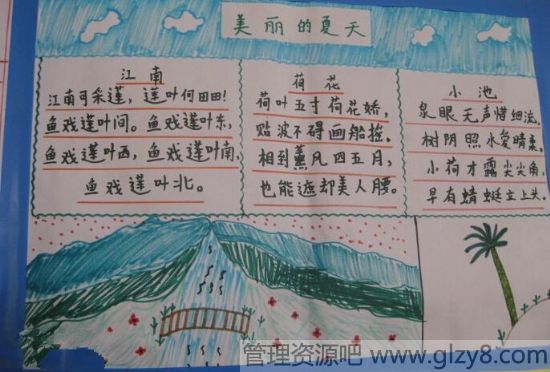 美丽的夏天
江南
江南可采莲，莲叶何田田！
鱼戏莲叶间。鱼戏莲叶东，
鱼戏莲叶西，鱼戏莲叶南，
鱼戏莲叶北。
荷花
荷叶五寸荷花娇，
贴波不碍画船摇。
相到薰风四五月，
也能遮却美人腰。
小池
泉眼无声惜细流，
树阴照水爱晴柔。
小荷才露尖尖角，
早有蜻蜓立上头。
管理资源吧 www.glzy8.com